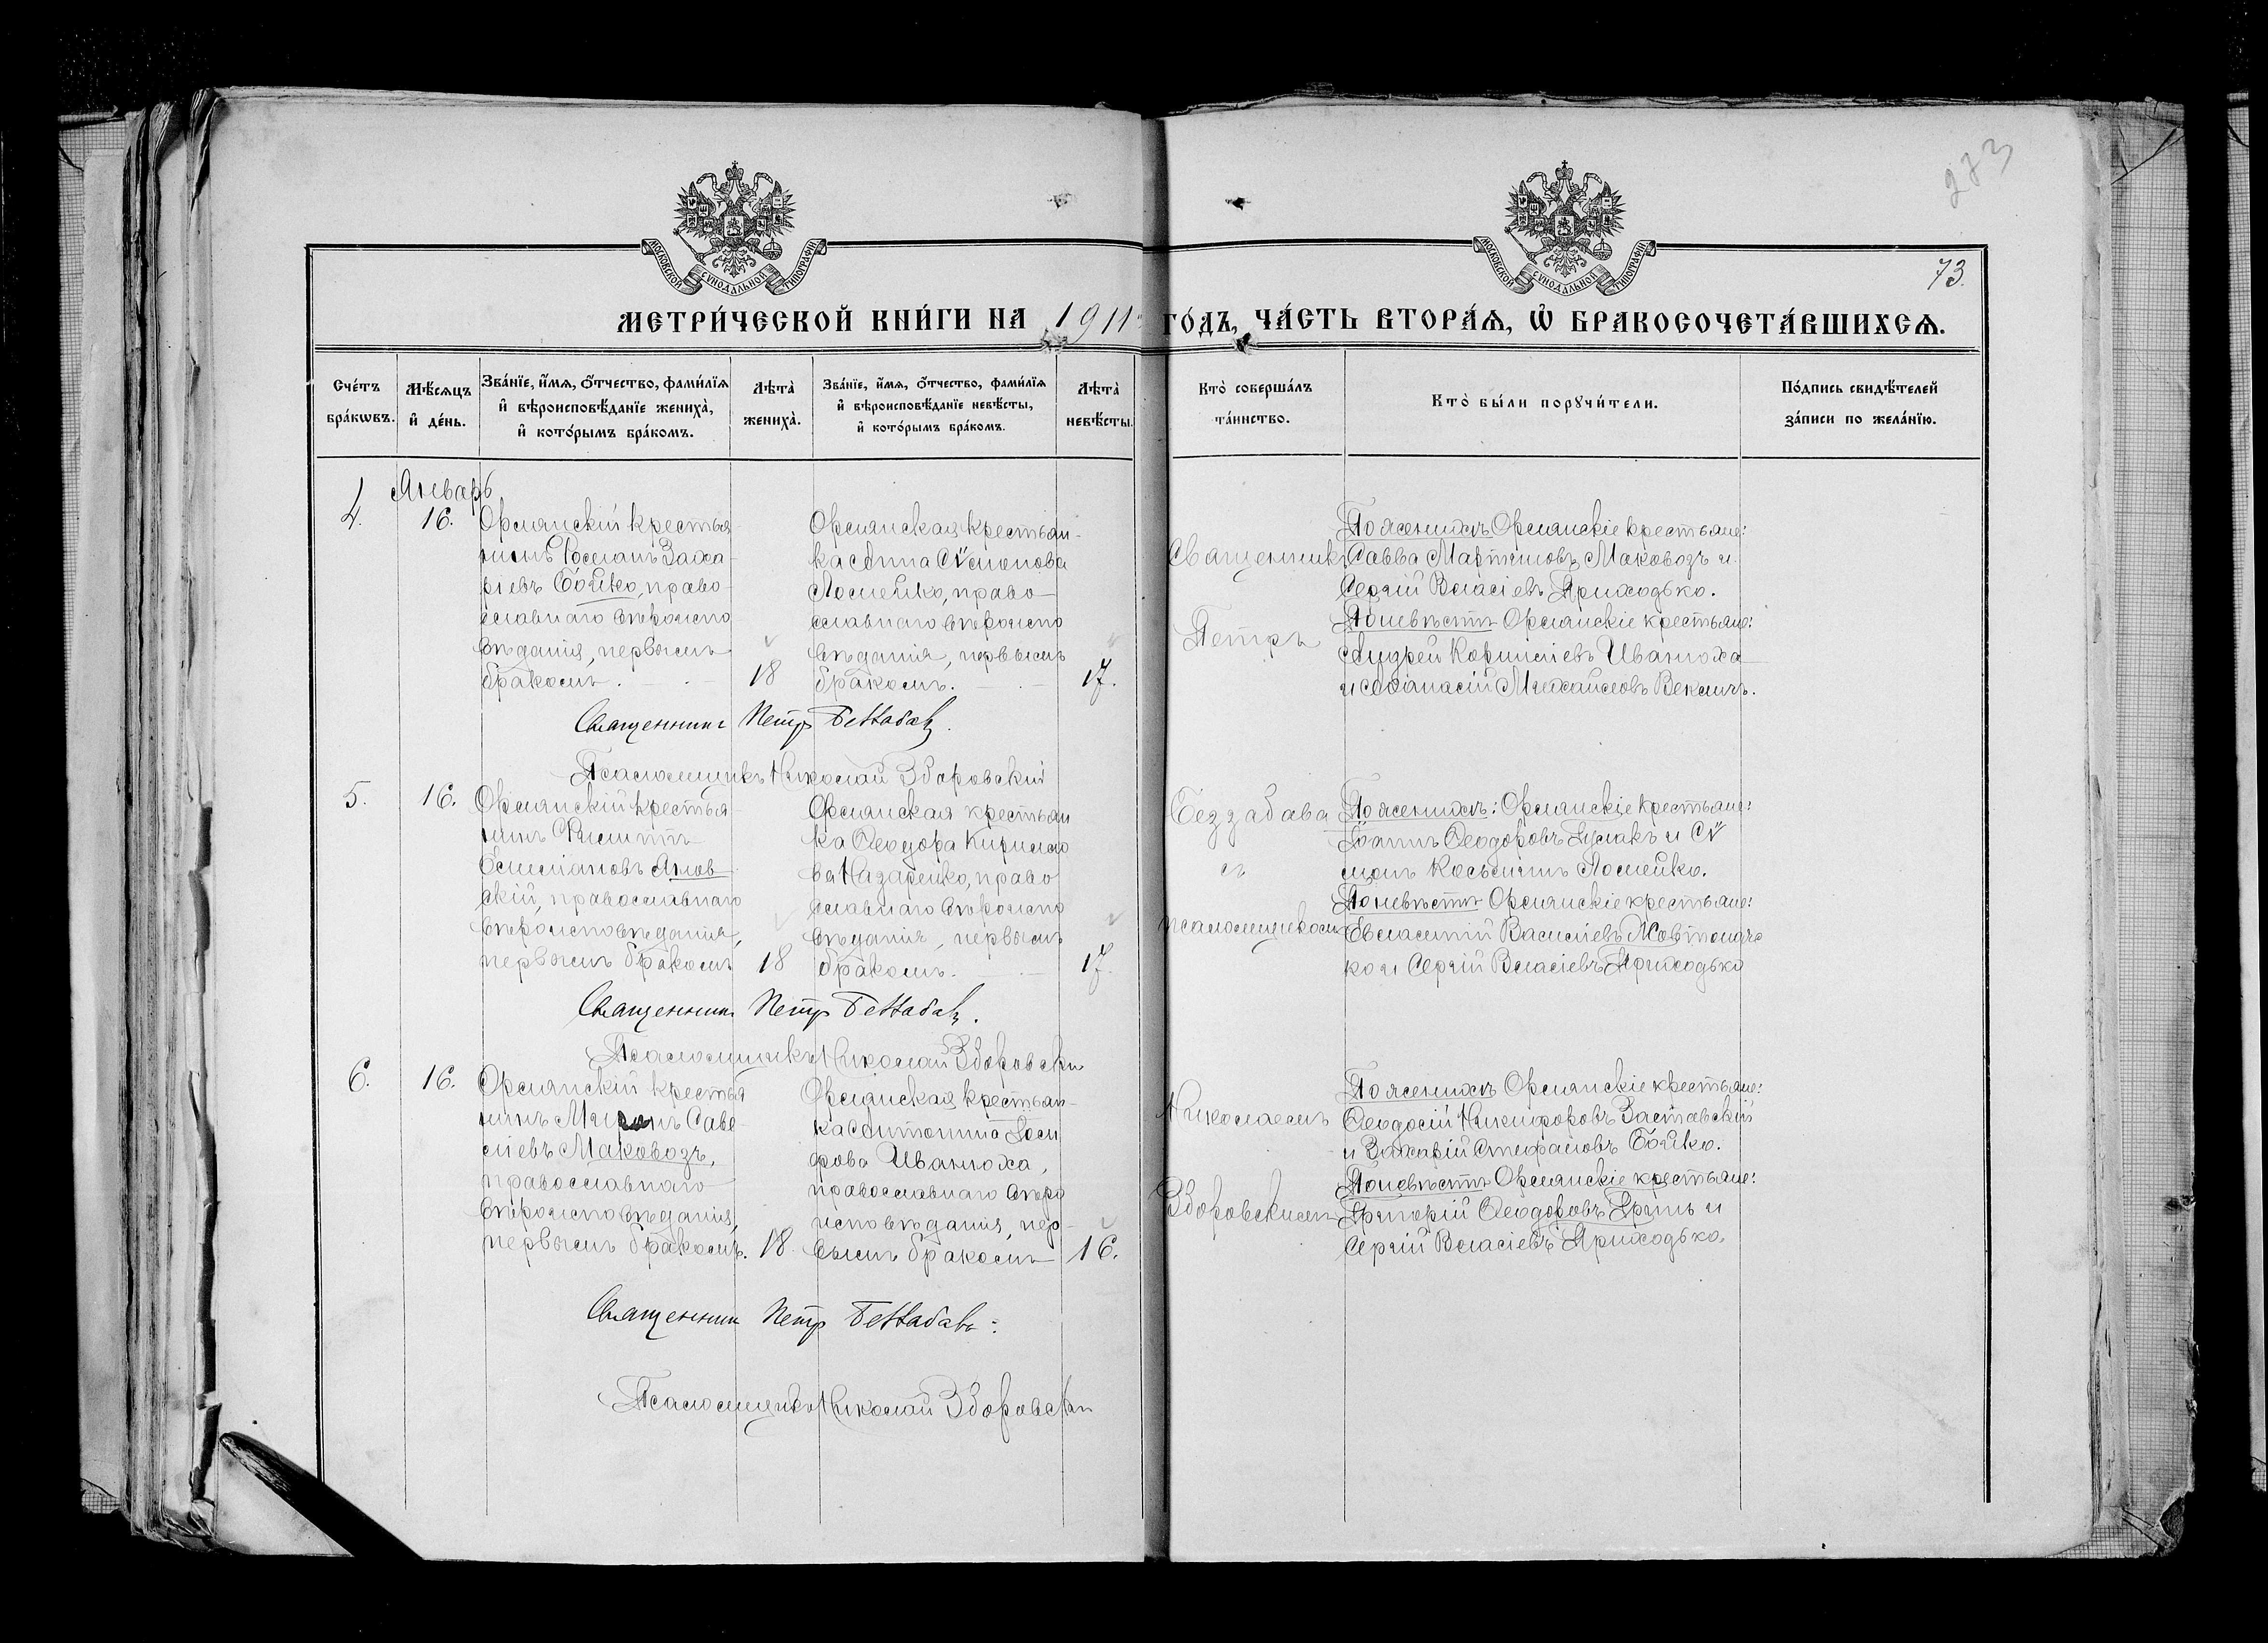 273
МОСКОВСКОЙ СѴНОДАЛЬНОЙ ТИПОГРАФІИ
МОСКОВСКОЙ СѴНОДАЛЬНОЙ ТИПОГРАФІИ
73.
МЕТРИ́ЧЕСКОЙ КНИ́ГИ НА 1911 ГО́ДЪ, ЧА́СТЬ ВТОРА́Ѧ, Ѡ҆ БРАКОСОЧЕТА́ВШИХСѦ.
Сче́тъ бра́кѡвъ.
Мѣ́сѧцъ и҆ де́нь.
Зва́нїе, и҆́мѧ, ѻ҆́тчество, фами́лїѧ
и҆ вѣроисповѣ́данїе жениха̀,
и҆ кото́рымъ бра́комъ.
Лѣта̀ жениха̀.
Зва́нїе, и҆́мѧ, ѻ҆́тчество, фами́лїѧ
и҆ вѣроисповѣ́данїе невѣ́сты,
и҆ кото́рымъ бра́комъ.
Лѣта̀ невѣ́сты.
Кто̀ соверша́лъ та́инство.
Кто̀ бы́ли порꙋчи́тели.
По́дпись свидѣ́телей за́писи по жела́нїю.
Январь
4.
16.
Орлянскій крестья
нинъ Романъ Заха-
ріевъ Бойко, право-
славнаго вѣроиспо
вѣданія, первымъ
бракомъ.
18
Орлянская крестьян-
ка Анна Сѵмонова
Ломейко, право
славнаго вѣроиспо
вѣданія, первымъ
бракомъ.
17.
Священникъ
Петръ
По женихѣ Орлянскіе крестьяне:
Савва Мартиновъ Маковозъ и
Сергій Власіевъ Приходько.
По невѣстѣ Орлянскіе крестьяне:
Андрей Корниліевъ Иванюха
и Аѳанасій Михайловъ Векличъ.
Священникъ Петръ Беззабавъ.
Псаломщикъ Николай Здоровскій
5.
16.
Орлянскій крестья
нинъ Филиппъ
скій, православнаго
вѣроисповѣданія,
первымъ бракомъ
18
Орлянская крестьян
ка Ѳеодора Кирилло
ва Назаренко, право
славнаго вѣроиспо
вѣданія, первымъ
бракомъ.
17.
Беззабава
съ
псаломщикомъ
По женихѣ: Орлянскіе крестьяне:
Іоаннъ Ѳеодоровъ и Сѵ
монъ Косьминъ Ломейко.
По невѣстѣ Орлянскіе крестьяне:
Евлампій Василіевъ
ко и Сергій Власіевъ Приходько
Священникъ Петръ Беззабавъ.
Псаломщикъ Николай Здоровскій
6.
16.
Орлянскій крестья
нинъ Миронъ Саве
ліевъ Маковозъ,
православнаго
вѣроисповѣданія,
первымъ бракомъ.
18
Орлянская крестьян-
ка Антонина Іоси
фова Иванюха,
православнаго вѣро
исповѣданія, пер-
вымъ бракомъ
16.
Николаемъ
Здоровскимъ
По женихѣ Орлянскіе крестьяне:
Ѳеодосій Никифоровъ Заставскій
и Захарій Стефановъ Бойко.
По невѣстѣ Орлянскіе крестьяне:
Григорій Ѳеодоровъ и
Сергій Власіевъ Приходько.
Священникъ Петръ Беззабавъ.
Псаломщикъ Николай Здоровскій